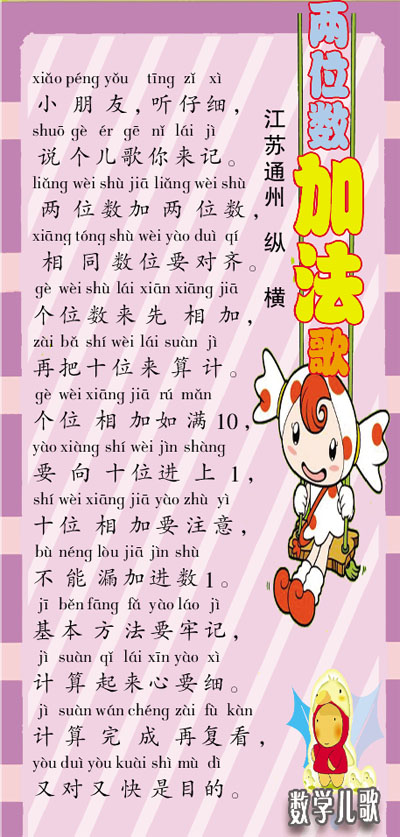 两位数加法歌
江苏通州 纵 横
xiǎo péng yǒu tīng zǐ xì
小朋友,听仔细,
shuō gè ér gē nǐ lái jì
说个儿歌你来记。
liǎng wèi shù jiā liǎng wèi shù
两位数加两位数,
xiāng tóng shù wèi yào duì qí
相同数位要对齐。
gè wèi shù lái xiān xiāng jiā
个位数来先相加,
zài bǎ shí wèi lái suàn jì
再把十位来算计。
gè wèi xiāng jiā rú mǎn
个位相加如满10,
yào xiàng shí wèi jìn shàng
要向十位进上1,
shí wèi xiāng jiā yào zhù yì
十位相加要注意,
bù néng lòu jiā jìn shù
不能漏加进数1。
jī běn fāng fǎ yào láo jì
基本方法要牢记,
jì suàn qǐ lái xīn yào xì
计算起来心要细。
jì suàn wán chéng zài fù kàn
计算完成再复看,
yòu duì yòu kuài shì mù dì
又对又快是目的。
数学儿歌